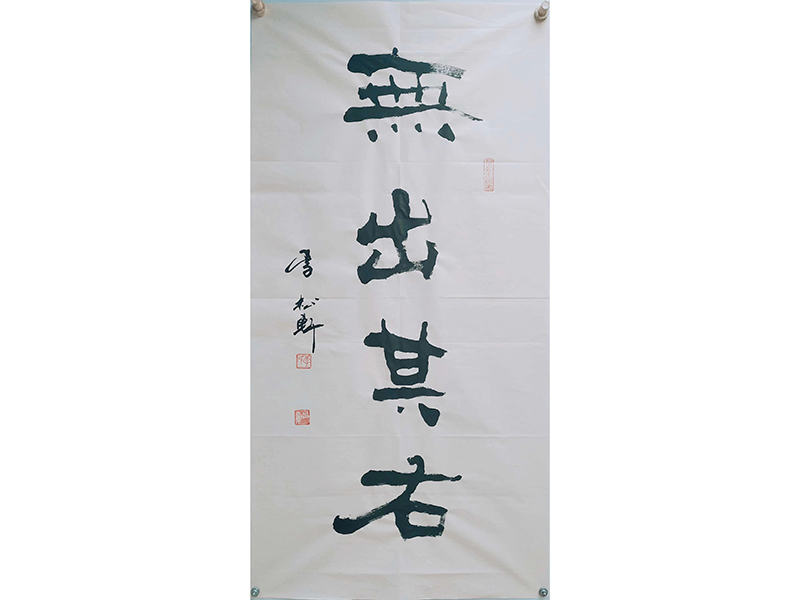 無出其右
松軒